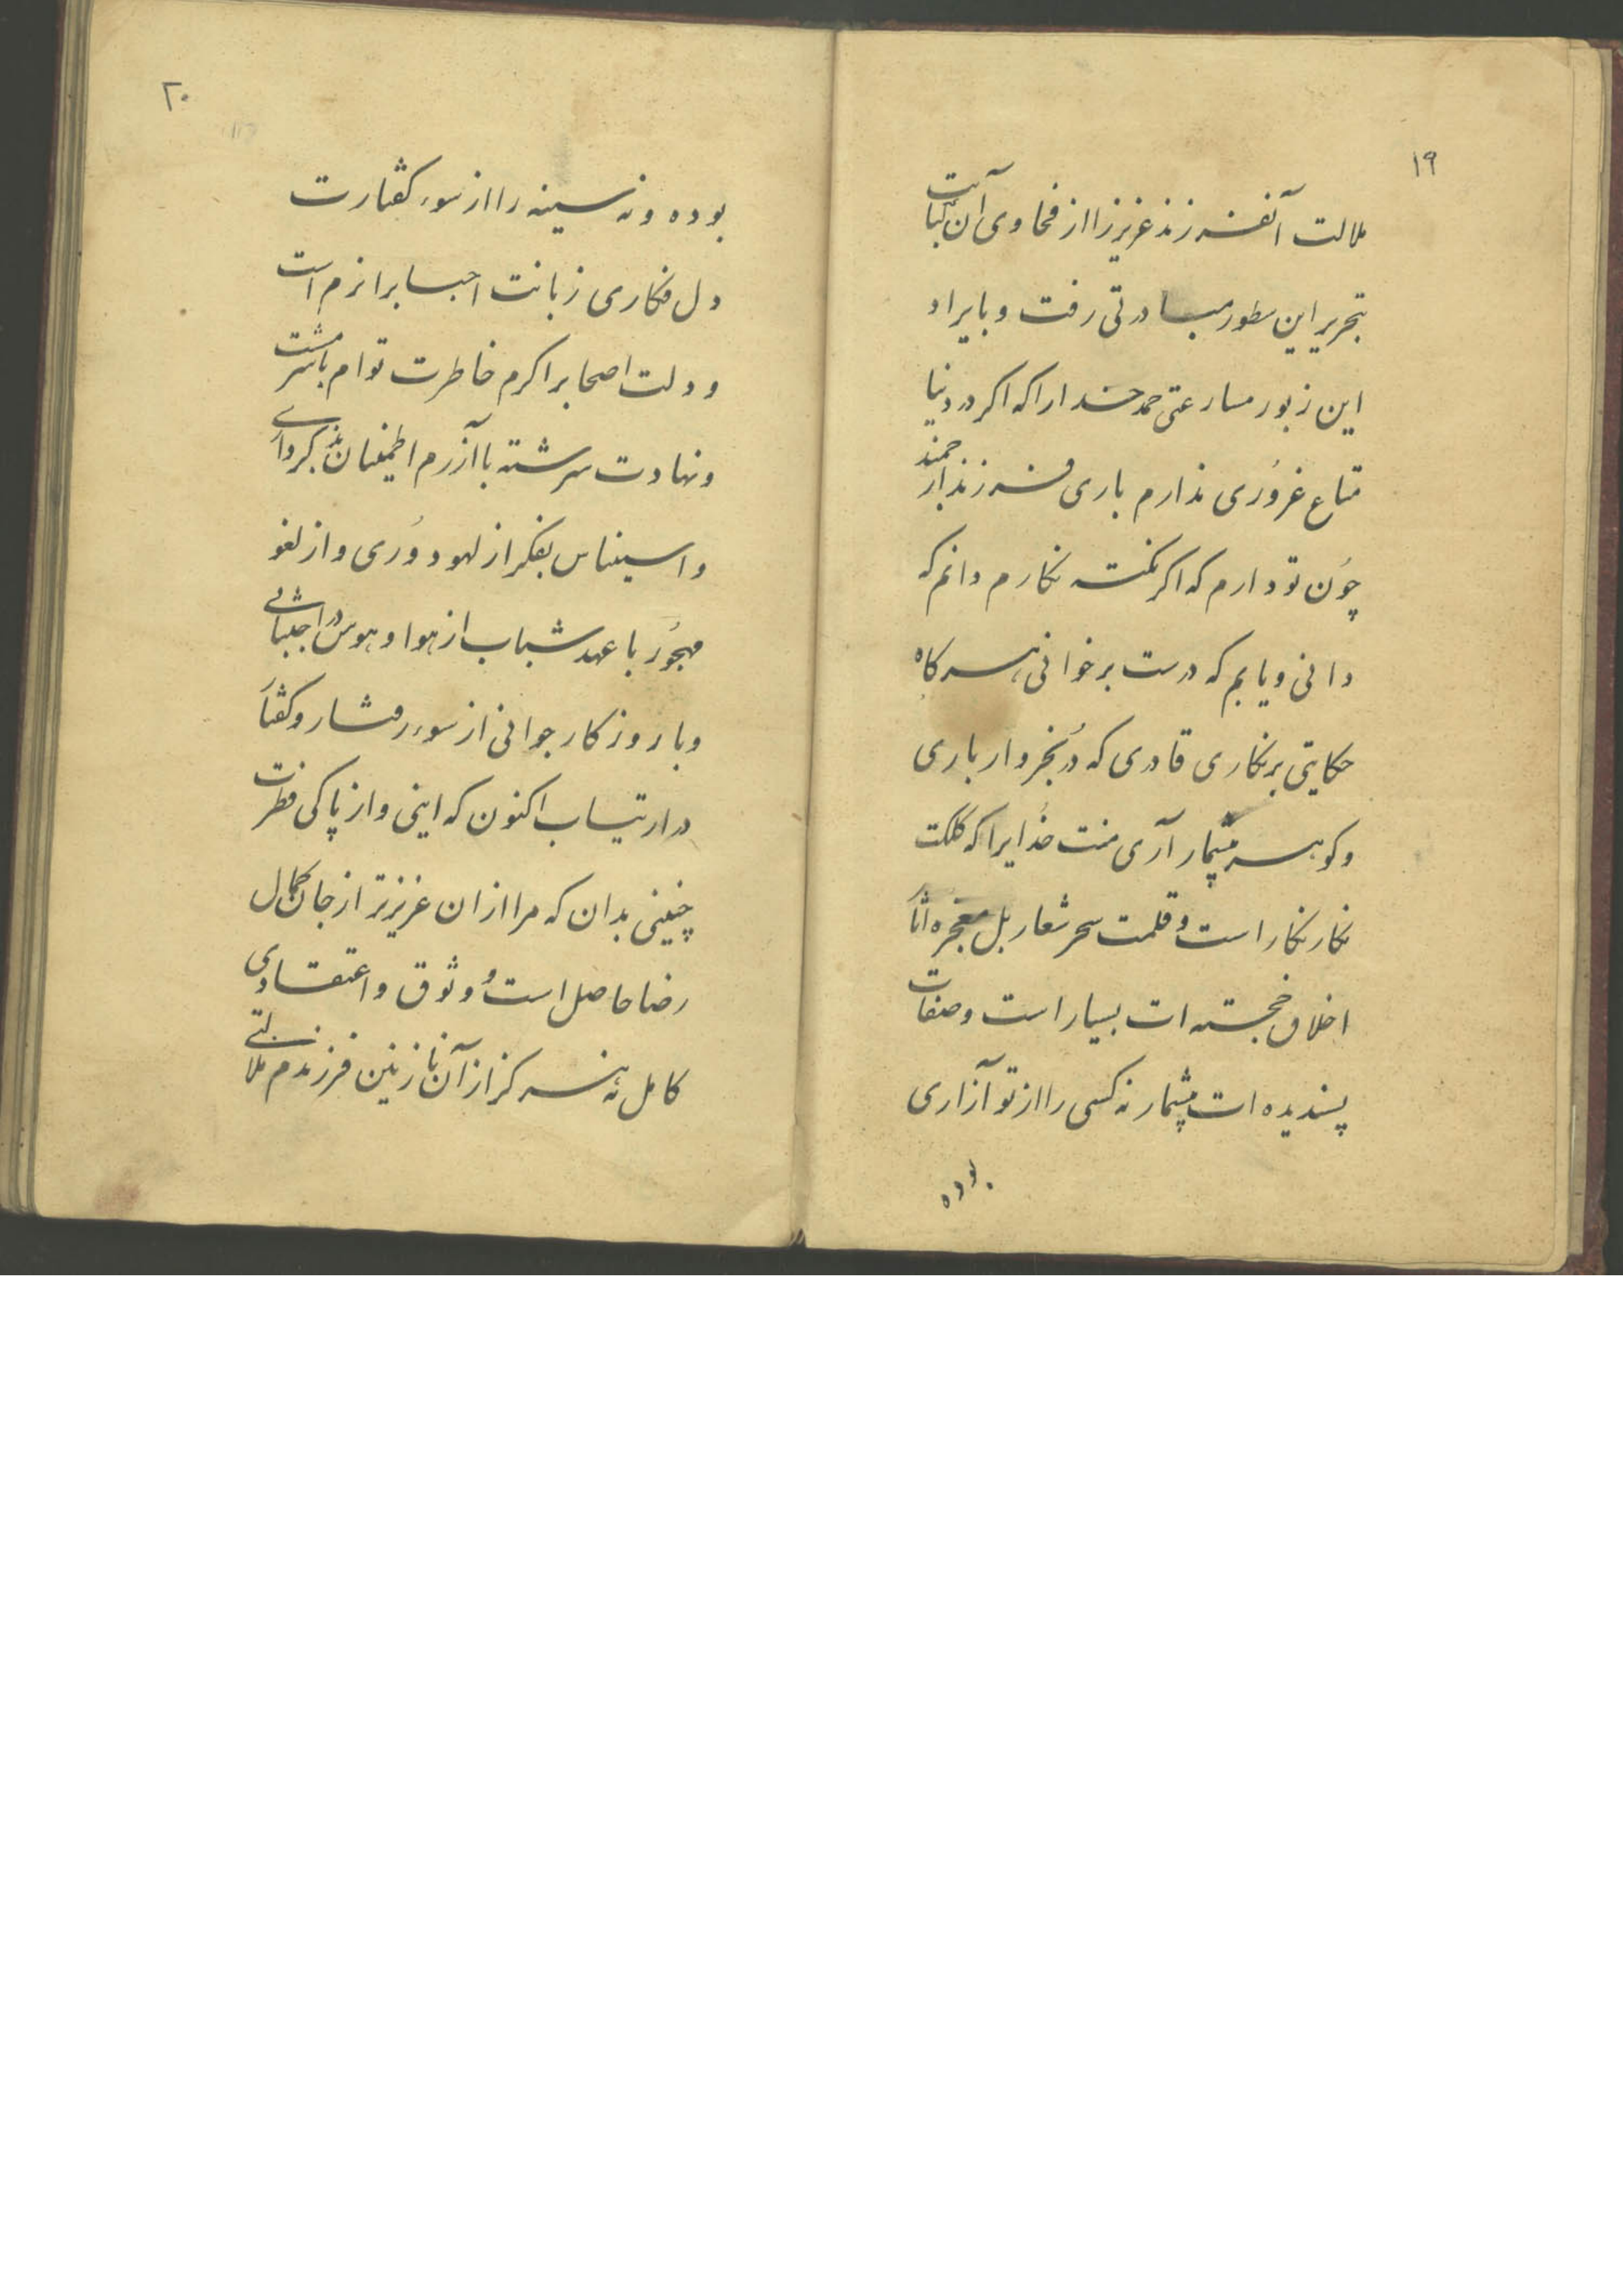 ۱۹
ملالت آنفرزند عزیز را از فحاوی آن آیت
بتحریر این سطور مبادرتی رفت و بایراد
این زبور مسارعتی حمد خدا را که اکر در دنیا
متاع غروری ندارم باری فرزند ارجمند
چون تو دارم که اکر نکته نکارم دانم که
دانی و یابم که درست برخوانی هر کاه
حکایتی برنکاری قادری که در بخروار باری
و کوهر بیشمار آری منت خدایرا که کلکت
نکار نکار است و قلمت سحر شعار بل معجزه آثار
اخلاق خجسته ات بسیار است و صفات
پسندیده ات بیشمار نه کسی را از تو آزاری
بوده
۲۰
بوده و نه سینه را از سوء کفتارت
دل فکاری زبانت احبا را نرم است
و دلت اصحاب را کرم خاطرت توام با شرمست
و نهادت سرشته با آزرم اطمینان بذکر داری
و استیناس بفکر از لهو دوری و از لغو
مهجور با عهد شباب از هوا و هوس در اجتنابی
و با روزکار جوانی از سوء رفتار و کفتار
در ارتیاب اکنون که اینی و از پاکی فطرت
چنینی بدان که مرا از ان عزیزتر از جان کمال
رضا حاصل است و وثوق و اعتقادی
کامل نه هرکز از آن نازنین فرزندم ملالتی